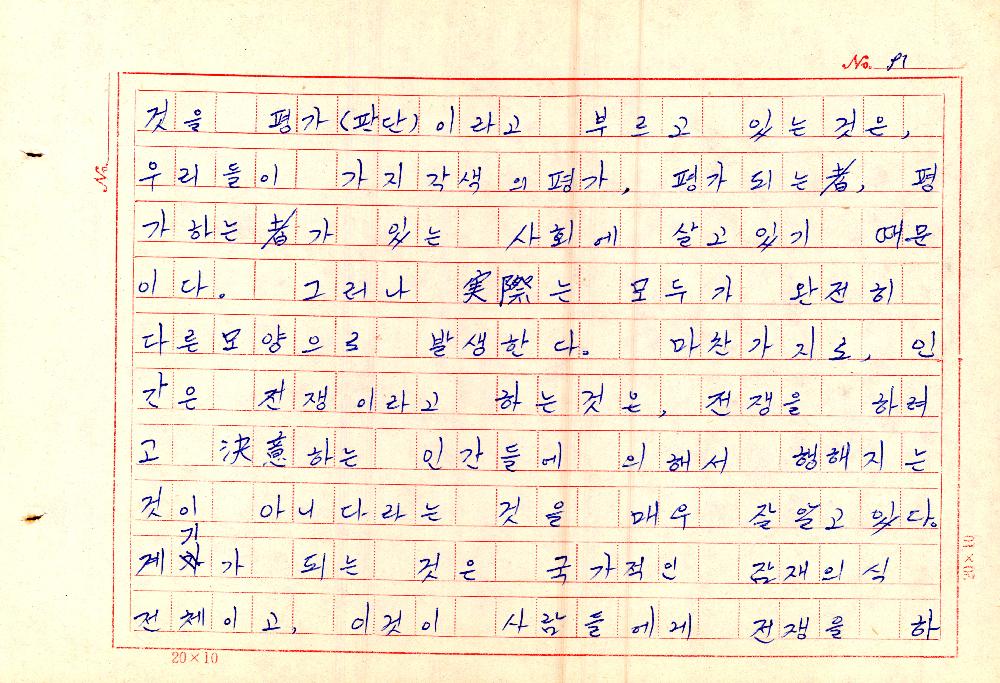 No. 91
것을 평가(판단)이라고 부르고 있는 것은,
우리들이 가지각색의 평가, 평가되는 者, 평
가하는 者가 있는 사회에 살고 있기 때문
이다. 그러나 実際는 모두가 완전히
다른 모양으로 발생한다. 마찬가지로, 인
간은 전쟁이라고 하는 것은, 전쟁을 하려
고 決意하는 인간들에 의해서 행해지는
것이 아니다라는 것을 매우 잘 알고 있다.
기
계가 되는 것은 국가적인 잠재의식
전체이고, 이것이 사람들에게 전쟁을 하
No.
20×10
20×10